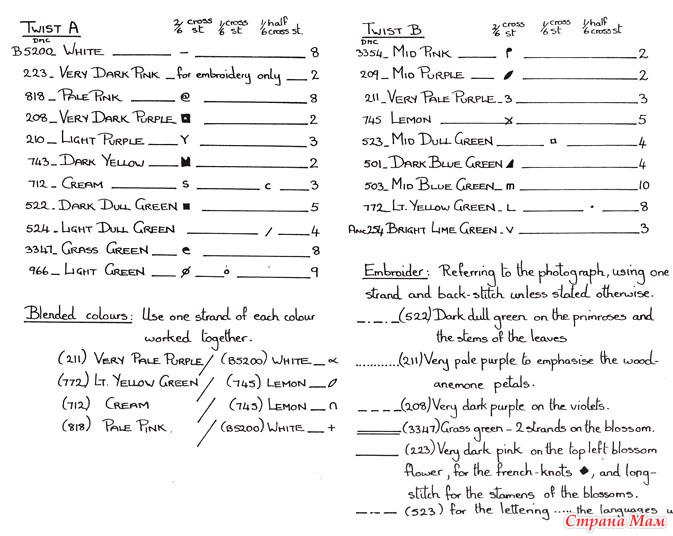 TWIST A 2/6 cross st 1/6 cross st 1/6 half cross st.
DMC
B5200 WHITE – 8
223 VERY DARK PINK for embroidery only 2
818 PALE PINK @ 8
208 VERY DARK PURPLE ◘ 2
210 LIGHT PURPLE Y 3
743 DARK YELLOW 2
712 CREAM S C 3
522 DARK DULL GREEN ■ 5
524 LIGHT DULL GREEN / 4
3347 GRASS GREEN e 8
966 LIGHT GREEN ø o 9
Blended colours: Use one strand of each colour
worked together.
(211) VERY PALE PURPLE / (B5200) WHITE ∝
(772) LT. YELLOW GREEN / (745) LEMON 0
(712) CREAM / (745) LEMON ∩
(818) PALE PINK. / (B5200) WHITE +
TWIST B 2/6 cross st 1/6 cross st 1/6 half cross st.
DMC
3354 MID PINK 2
209 MID PURPLE 2
211 VERY PALE PURPLE 3 3
745 LEMON x 5
523 MID DULL GREEN □ 4
501 DARK BLUE GREEN ◢ 4
503 MID BLUE GREEN m 10
772 LT. YELLOW GREEN L · 8
Anc 254 BRIGHT LIME GREEN V 3
Embroider: Referring to the photograph, using one
strand and back-stitch unless stated otherwise.
(522) Dark dull green on the primroses and
the stems of the leaves
(211) Very pale purple to emphasise the wood-
anemone petals.
(208) Very dark purple on the violets.
(3347) Grass green – 2 strands on the blossom.
(223) Very dark pink on the top left blossom
flower, for the french-knots ◆, and long-
stitch for the stamens of the blossoms.
(523) for the lettering ..... the languages
Страна Мам